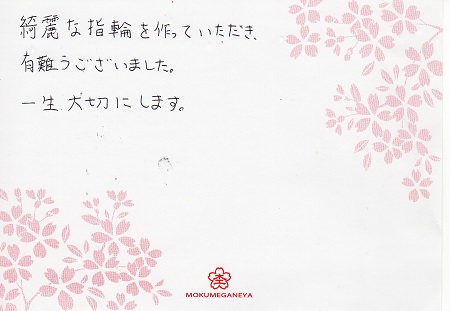 綺麗な指輪を作っていただき、
有難うございました。
一生大切にします。
MOKUMEGANEYA